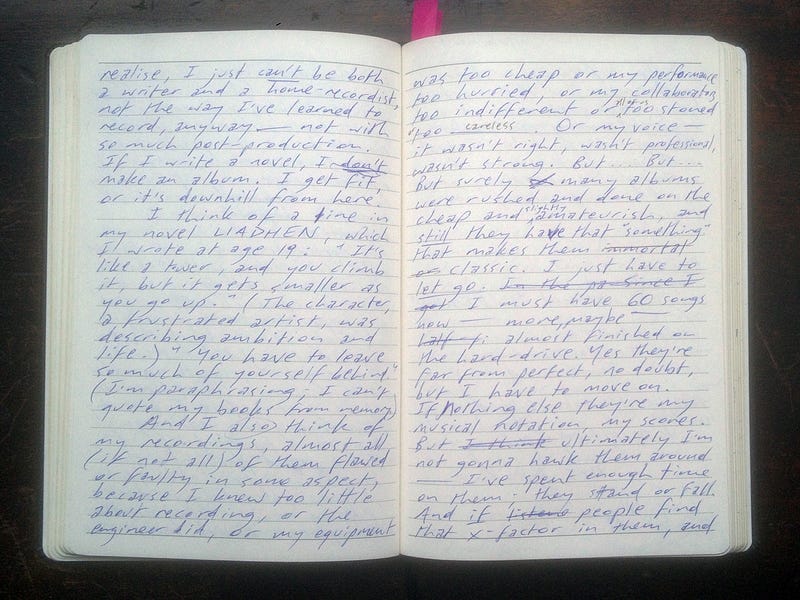 realise, I just can't be both
a writer and a home-recordist,
not the way I've learned to
record, anyway — not with
so much post-production.
If I write a novel, I don't
make an album. I get fit,
or it's downhill from here.
I think of a line in
my novel LIADHEN, which
I wrote at age 19: "It's
like a tower, and you climb
it, but it gets smaller as
you go up." (The character,
a frustrated artist, was
describing ambition and
life.) "You have to leave
so much of yourself behind"
(I'm paraphrasing; I can't
quote my books from memory)
And I also think of
my recordings, almost all
(if not all) of them flawed
or faulty in some aspect,
because I knew too little
about recording, or the
engineer did, or my equipment
was too cheap or my performance
too hurried, or my collaborators
too indifferent or all of us too stoned
too careless. Or my voice —
it wasn't right, wasn't professional,
wasn't strong. But.... But....
But surely many albums
were rushed and done on the
cheap and slightly amateurish, and
still they have that "something"
that makes them immortal
or classic. I just have to
let go. In the pa Since I
got I must have 60 songs
now — more, maybe —
half-fi almost finished on
the hard-drive. Yes they're
far from perfect, no doubt,
but I have to move on.
If nothing else they're my
musical notation, my scores.
But I think ultimately I'm
not gonna hawk them around
— I've spent enough time
on them. they stand or fall.
And if listene people find
that x-factor in them, and